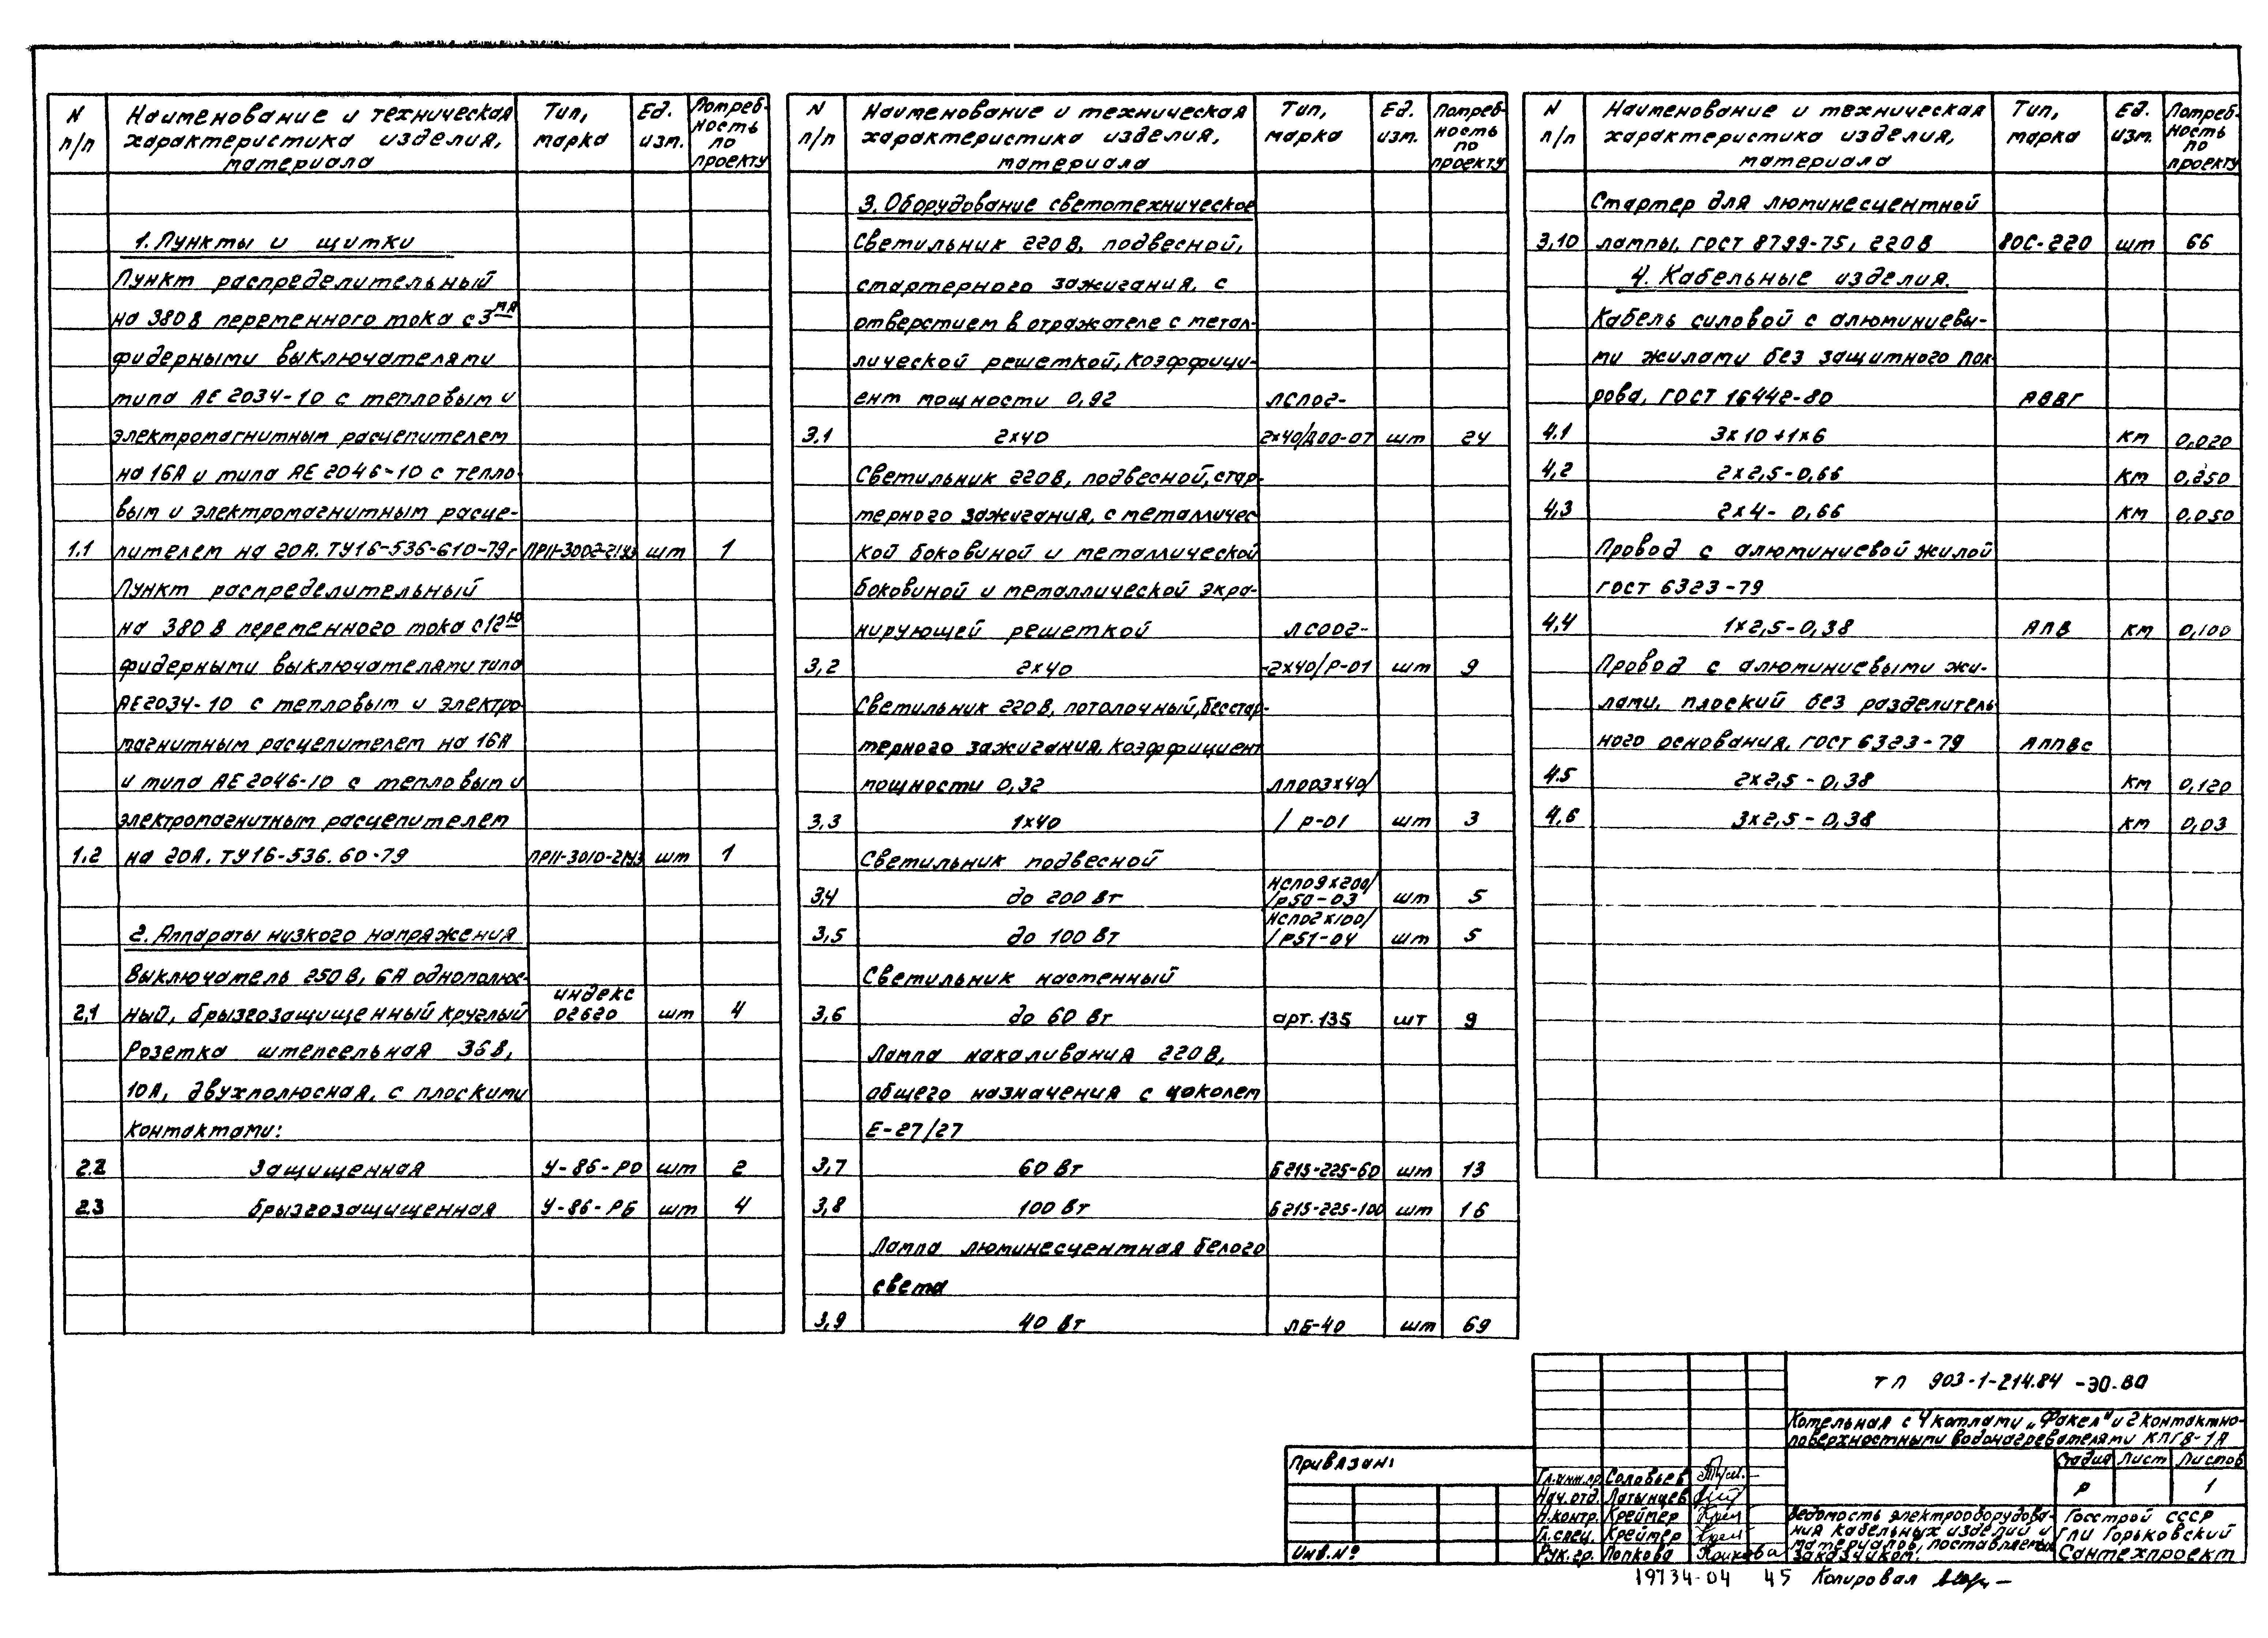 N п/п Наименование и техническая характеристика изделия, материала Тип, марка Ед. изм. Потребность по проекту
1. Пункты и щитки
Пункт распределительный
на 380 В переменного тока с 3мя
фидерными выключателями
типа АЕ 2034-10 с тепловым и
электромагнитным расцепителем
на 16А и типа АЕ 2046-10 с тепло-
вым и электромагнитным расце-
1.1 пителем на 20А. ТУ16-536-610-79г ПР11-3002-21У3 шт 1
Пункт распределительный
на 380 В переменного тока с 12ю
фидерными выключателями типа
АЕ2034-10 с тепловым и электро
магнитным расцепителем на 16А
и типа АЕ 2046-10 с тепловым и
электромагнитным расцепителем
1.2 на 20А. ТУ16-536.60-79 ПР11-3010-21У3 шт 1
2. Аппараты низкого напряжения
Выключатель 250 В, 6А однополюс-
2.1 ный, брызгозащищенный круглый индекс 02620 шт 4
Розетка штепсельная 36 В,
10А, двухполюсная, с плоскими
контактами:
2.2 Защищенная У-86-РО шт 2
2.3 брызгозащищенная У-86-РБ шт 4
N п/п Наименование и техническая характеристика изделия, материала Тип, марка Ед. изм. Потребность по проекту
3. Оборудование светотехническое
Светильник 220 В, подвесной,
стартерного зажигания, с
отверстием в отражателе с метал-
лической решеткой, коэффици-
ент мощности 0,92 ЛСПО2-
3.1 2х40 2х40/Д00-07 шт 24
Светильник 220 В, подвесной, стар-
терного зажигания, с металличес
кой боковиной и металлической
боковиной и металлической экра-
нирующей решеткой ЛСОО2-
3,2 2х40 -2х40/Р-01 шт 9
Светильник 220 В, потолочный, бесстар-
терного зажигания. Коэффициент
мощности 0,32 ЛПОО3х40/
3,3 1х40 /Р-01 шт 3
Светильник подвесной
3,4 до 200 Вт НСПО9х200/ /Р50-03 шт 5
3,5 до 100 Вт НСПО2х100/ /Р51-04 шт 5
Светильник настенный
3,6 до 60 Вт арт. 135 шт 9
Лампа накаливания 220 В,
общего назначения с цоколем
Е-27/27
3,7 60 Вт Б215-225-60 шт 13
3,8 100 Вт Б215-225-100 шт 16
Лампа люминесцентная белого
света
3,9 40 Вт ЛБ-40 шт 69
N п/п Наименование и техническая характеристика изделия, материала Тип, марка Ед. изм. Потребность по проекту
Стартер для люминесцентной
3,10 лампы, ГОСТ 8799-75, 220 В 80С-220 шт 66
4. Кабельные изделия.
Кабель силовой с алюминиевы-
ми жилами без защитного пок-
рова, ГОСТ 16442-80 АВВГ
4.1 3х10+1х6 км 0,020
4,2 2х2,5-0,66 км 0,250
4,3 2х4-0,66 км 0,050
Провод с алюминиевой жилой
ГОСТ 6323-79
4,4 1х2,5-0,38 АПВ км 0,100
Провод с алюминиевыми жи-
лами, плоский без разделитель
ного основания, ГОСТ 6323-79 АППВс
4.5 2х2,5-0,38 км 0,120
4,6 3х2,5-0,38 км 0,03
ТП 903-1-214.84 -ЭО.ВО
Котельная с 4 котлами „Факел" и 2 контактно-
поверхностными водонагревателями КПГВ-1А
Привязан:
Инв.№
Гл.инж.пр. Соловьев
Нач.отд. Латынцев
Н.контр. Креймер
Гл.спец. Креймер
Рук.гр. Попкова
Стадия Лист Листов
Р 1
Ведомость электрооборудова-
ния кабельных изделий и
материалов, поставляемых
заказчиком.
Госстрой СССР
ГПИ Горьковский
Сантехпроект
19734-04 45 Копировал